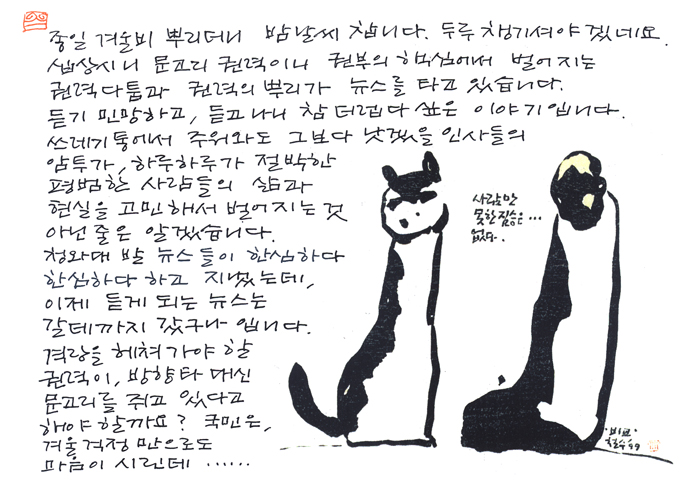 종일 겨울비 뿌리더니 밤날씨 찹니다. 두루 챙기셔야 겠네요.
십상시니 문고리 권력이니 권부의 핵심에서 벌어지는
권력다툼과 권력의 뿌리가 뉴스를 타고 있습니다.
듣기 민망하고, 듣고나니 참 더럽다 싶은 이야기입니다.
쓰레기통에서 주워와도 그보다 낫겠을 인사들의
암투가, 하루하루가 절박한
평범한 사람들의 삶과
현실을 고민해서 벌어지는 것
아닌 줄은 알겠습니다.
청와대 발 뉴스들이 한심하다
한심하다 하고 지냈는데,
이제 듣게 되는 뉴스는
갈데까지 갔구나 입니다.
격랑을 헤쳐가야 할
권력이, 방향타 대신
문고리를 쥐고 있다고
해야 할까요? 국민은,
겨울걱정 만으로도
마음이 시린데 ......
사람만
못한 짐승은...
없다.
'비교'
철수